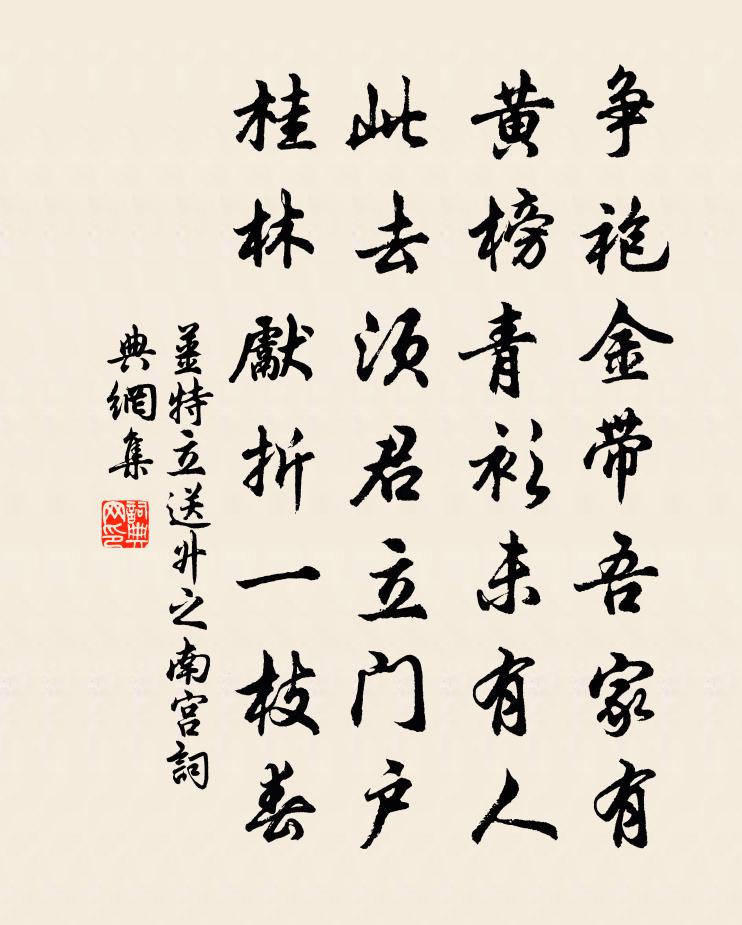 争袍金带吾家有
黄榜青衫未有人
此去须君立门户
桂林獻折一枝春
姜特立送升之南宫詞
典網集
詞典网印